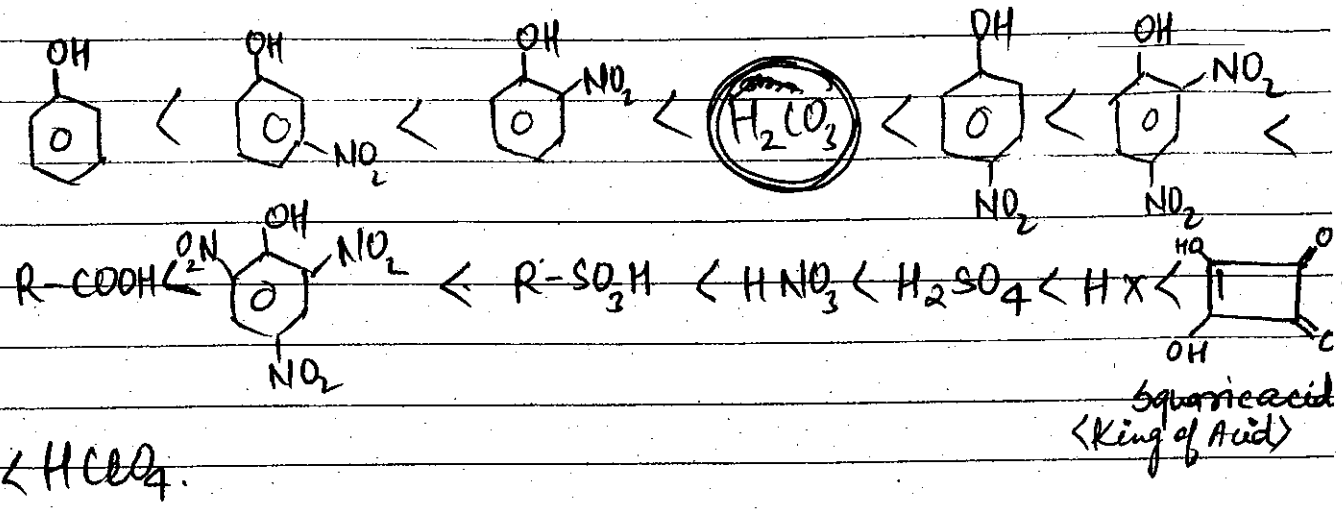 OH OH OH OH OH
< < NO₂ < H₂CO₃ < < NO₂ <
NO₂ NO₂ NO₂
R-COOH < O₂N OH NO₂ < R-SO₃H < HNO₃ < H₂SO₄ < HX < HO O
NO₂ OH O
Squaric acid
<King of Acid>
< HClO₄.